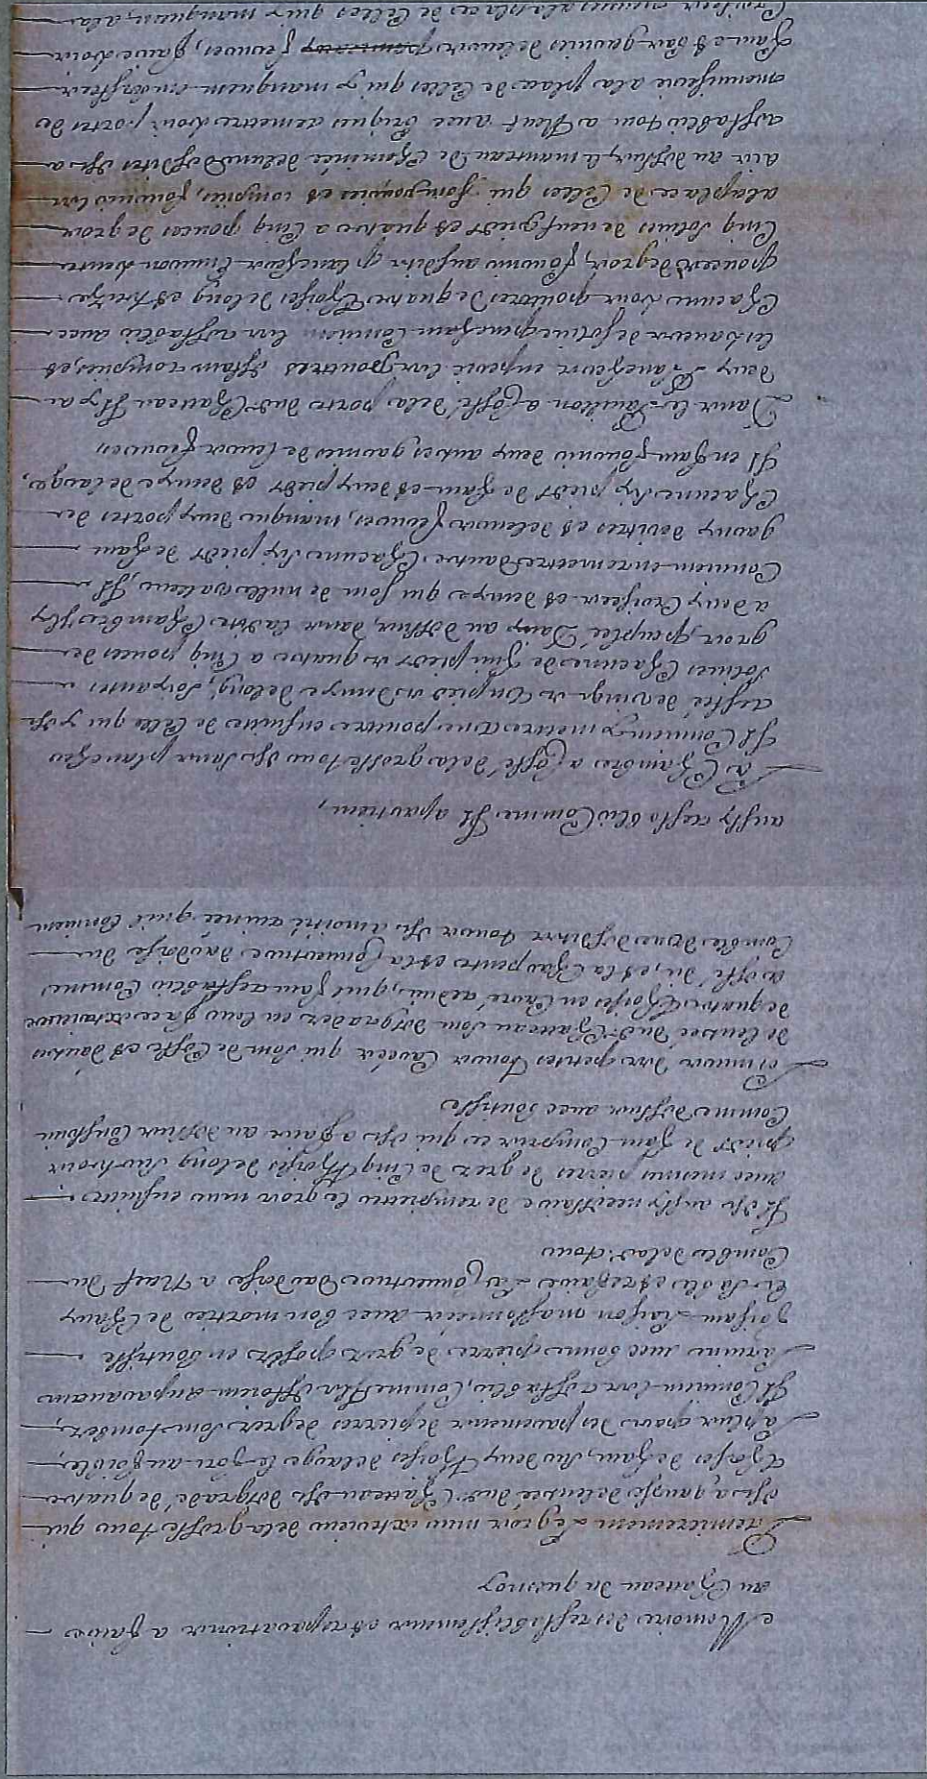 Memoire des restablissemens et reparations a faire
au Chatteau du quesnoy
Premierement Le gros mur exterieur de la grosse tour qui
est a gauche de lentrée dud. Chatteau est desgradé de quatre
thoises de haut, sur deux thoises de large le fort au foible,
a plus grand des paremens de pierres de grez sont tombez,
Il Convient les restablir, Comme Ils estoient auparavant
a mine avec bonne pierre de grez posez en boutisse
faisant Liaison massonnées avec bon mortier de Chaux
et Sable et refaire La Couverture Dardoise a neuf du
Comble de lad. tour
Il est aussy necessaire de rempietter le gros mur ensuitte
avec mesmes pierres de grez de Cinq thoises de long Sur trois
pieds de haut Compris ce qui est a faire au dessus Construit
Comme dessus avec boutisse
Les murs des petites tours Carées qui sont de Coste et dautre
de lentrée dud. Chatteau sont desgradez en leur face exterieure
de quatre thoises en Caré reduit, quil faut restablir Comme
a esté dit, et la Charpente et la Couverture dardoise du
Comble dune desdites tours est a moitié ruinée quil Convient
aussy restablir Comme Il apartient,
La Chambre a Costé de la grosse tour est sans plancher
Il Convient y mettre une pouttre ensuitte de Celle qui y est
restée de vingt et un pieds et demye de long, soixantes
solives Chacune de huit pieds et quatre a Cinq pouces de
gros, peuplée Dans au dessus, dans ladite Chambre Il y
a deux Croisées et demye qui sont de nulle valeur, Il
Convient en remettre dautre Chacune six pieds de haut
garny de vitres et de leurs ferrures, manque deux portes de
Chacune six pieds de haut et deux pieds et demye de large,
Il en faut fournir deux autres garnies de leurs ferrures,
Dans le Pavillon a Costé de la porte dud. Chatteau Il y a
deux Planchers enfoncé les pouttres estans rompues, et
les travures de solive Il Convient les restablir avec
Chacune trois pouttres de quatre thoises de long et treize
pouces de gros, fournir ausdits planchers environ trente
Cinq solives de neuf pieds et quatre a Cinq pouces de gros
a la place de Celles qui sont pouries et rompues, fournir un
aire au dessus, le manteau de Cheminée de lune desdites est a
restablir tout a neuf avec briques remettre trois portes de
menuiserie a la place de Celles qui y manquent un dessus
haut et bas garnies de leurs ferrures, faire trois
Croisées neuves a la place de Celles qui y manquent, a la